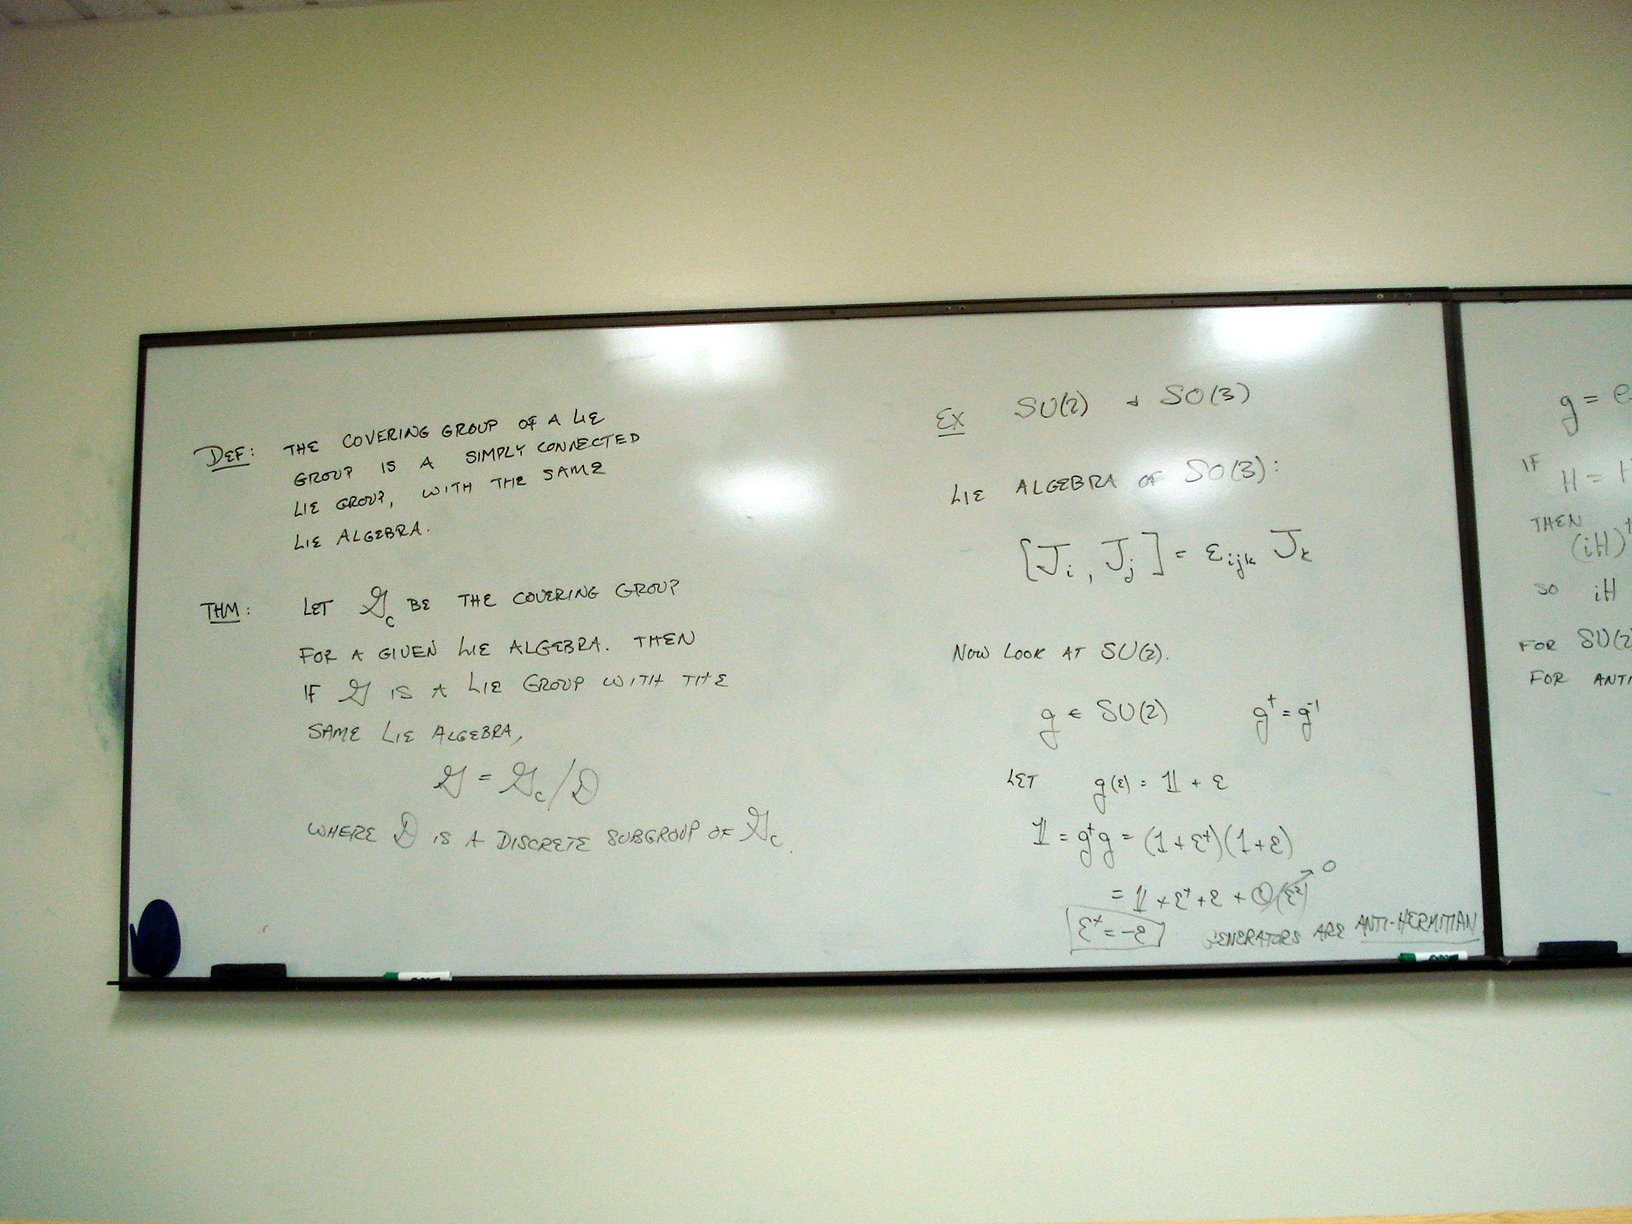 DEF: THE COVERING GROUP OF A LIE
GROUP IS A SIMPLY CONNECTED
LIE GROUP, WITH THE SAME
LIE ALGEBRA.
THM: LET 𝒢c BE THE COVERING GROUP
FOR A GIVEN LIE ALGEBRA. THEN
IF 𝒢 IS A LIE GROUP WITH THE
SAME LIE ALGEBRA,
𝒢 = 𝒢c/D
WHERE D IS A DISCRETE SUBGROUP OF 𝒢c.
EX SU(2) & SO(3)
LIE ALGEBRA OF SO(3):
[Ji, Jj] = εijk Jk
NOW LOOK AT SU(2).
g ∈ SU(2) g† = g⁻¹
LET g(ε) = 𝟙 + ε
𝟙 = g†g = (1 + ε†)(1 + ε)
= 𝟙 + ε† + ε + O(ε²) → 0
ε† = -ε GENERATORS ARE ANTI-HERMITIAN
g = e
IF H = H
THEN (iH)†
SO iH
FOR SU(2)
FOR ANTI